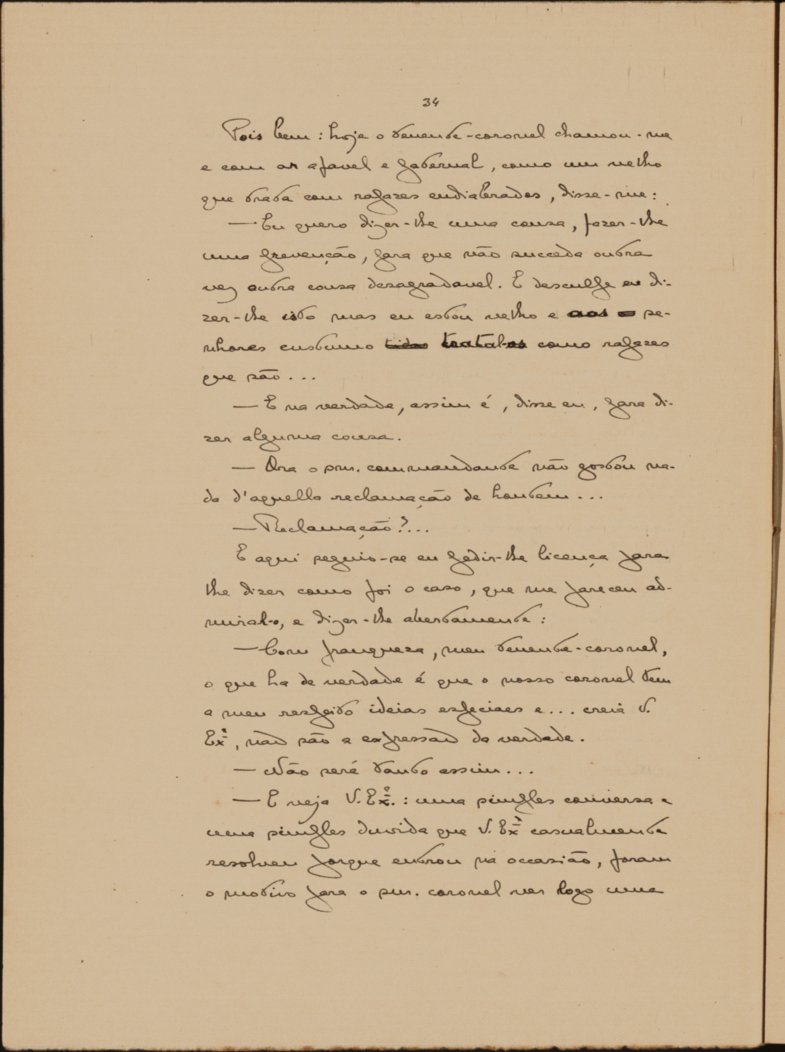 34
Pois bem: hoje o tenente-coronel chamou-me
e com ar afavel e paternal, como um velho
que trata com rapazes endiabrados, disse-me:
— Eu quero dizer-lhe uma cousa, fazer-lhe
uma prevenção, para que não succeda outra
vez outra cousa desagradavel. E desculpe eu di-
zer-lhe isto mas eu estou velho e aos se-
nhores costumo tratal-os como rapazes
que são...
— E na verdade, assim é, disse eu, para di-
zer alguma cousa.
— Ora o snr. commandante não gostou na-
da d'aquella reclamação de hontem...
— Reclamação?...
E aqui seguio-se eu pedir-lhe licença para
lhe dizer como foi o caso, que me pareceu ad-
miral-o, e dizer-lhe abertamente:
— Com franqueza, meu tenente-coronel,
o que ha de verdade é que o nosso coronel tem
a meu respeito ideias especiaes e... creia V.
Exª, não são a expressão da verdade.
— Não será tanto assim...
— E veja V. Exª.: uma simples conversa e
uma simples duvida que V. Exª casualmente
resolveu porque entrou na occasião, foram
o motivo para o snr. coronel ver logo uma